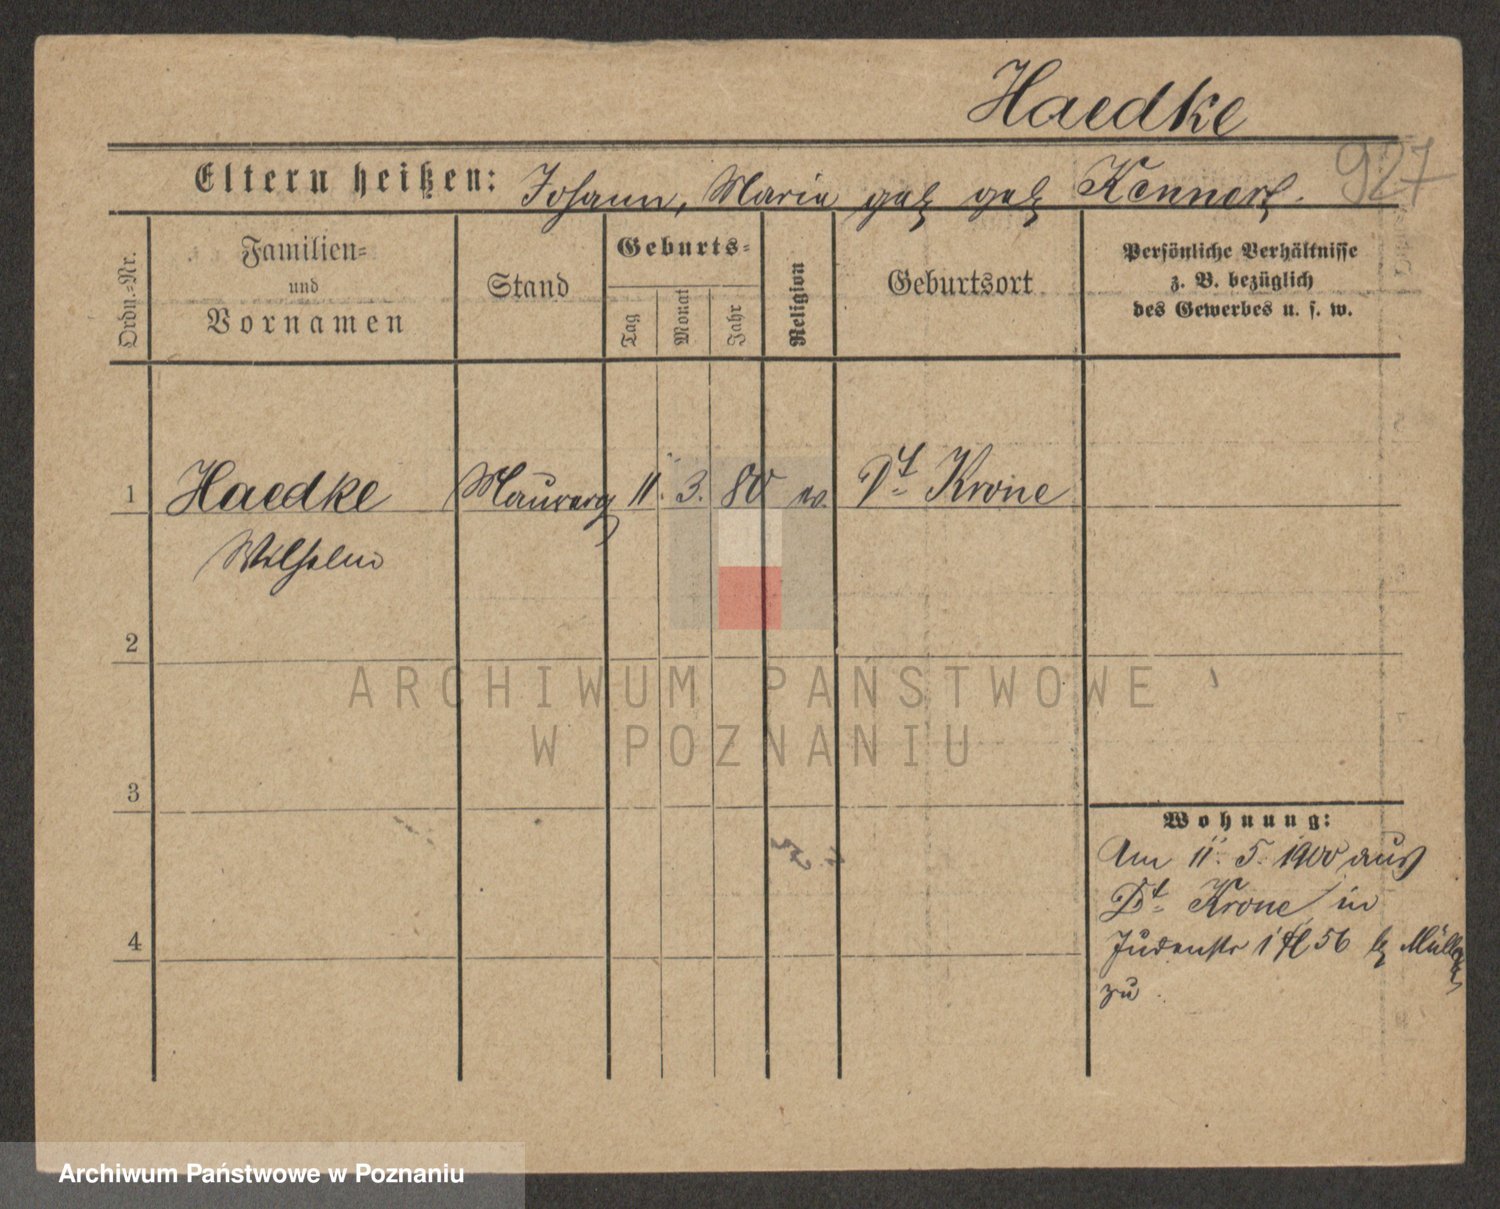 Haedke
927
Eltern heißen: Johann, Marie geb Kennert.
Ordn.-Nr.
Familien-
und
Vornamen
Stand
Geburts-
Tag
Monat
Jahr
Religion
Geburtsort
Persönliche Verhältnisse
z. B. bezüglich
des Gewerbes u. s. w.
1 Haedke Maurerg 11. 3. 80 ev. Dt. Krone
Wilhelm
2
ARCHIWUM PAŃSTWOWE
W POZNANIU
3
Wohnung:
Am 11. 5. 1900 aus
Dt. Krone in
Judenstr 1 56 b Müller
zu
4
Archiwum Państwowe w Poznaniu